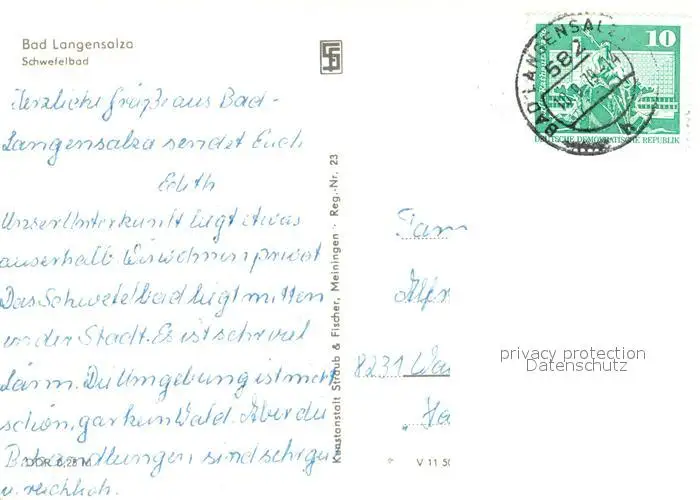 Bad Langensalza
Schwefelbad
Herzliche Grüße aus Bad-
Langensalza sendet Euch
Edith
Unser Unterkunft liegt etwas
auserhalb. Wir wohnen privat
Das Schwefelbad liegt mitten
in der Stadt. Es ist sehr viel
Lärm. Die Umgebung ist nicht
schön, gar kein Wald. Aber die
Behandlungen sind sehr gu
u. reichlich.
DDR 0,25 M
Kunstanstalt Straub & Fischer, Meiningen · Reg.-Nr. 23
V 11 50
10
DEUTSCHE DEMOKRATISCHE REPUBLIK
BAD LANGENSALZ
582
Fam
Alfr
8231
privacy protection
Datenschutz